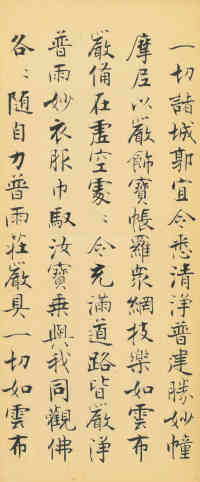 一切諸城郭宜令悉清淨普建勝妙幢
摩尼以嚴飾寶帳羅衆網技樂如雲布
嚴備在虛空處〻令充滿道路皆嚴淨
普雨妙衣服巾馭汝寶乘與我同觀佛
各〻隨自力普雨莊嚴具一切如雲布